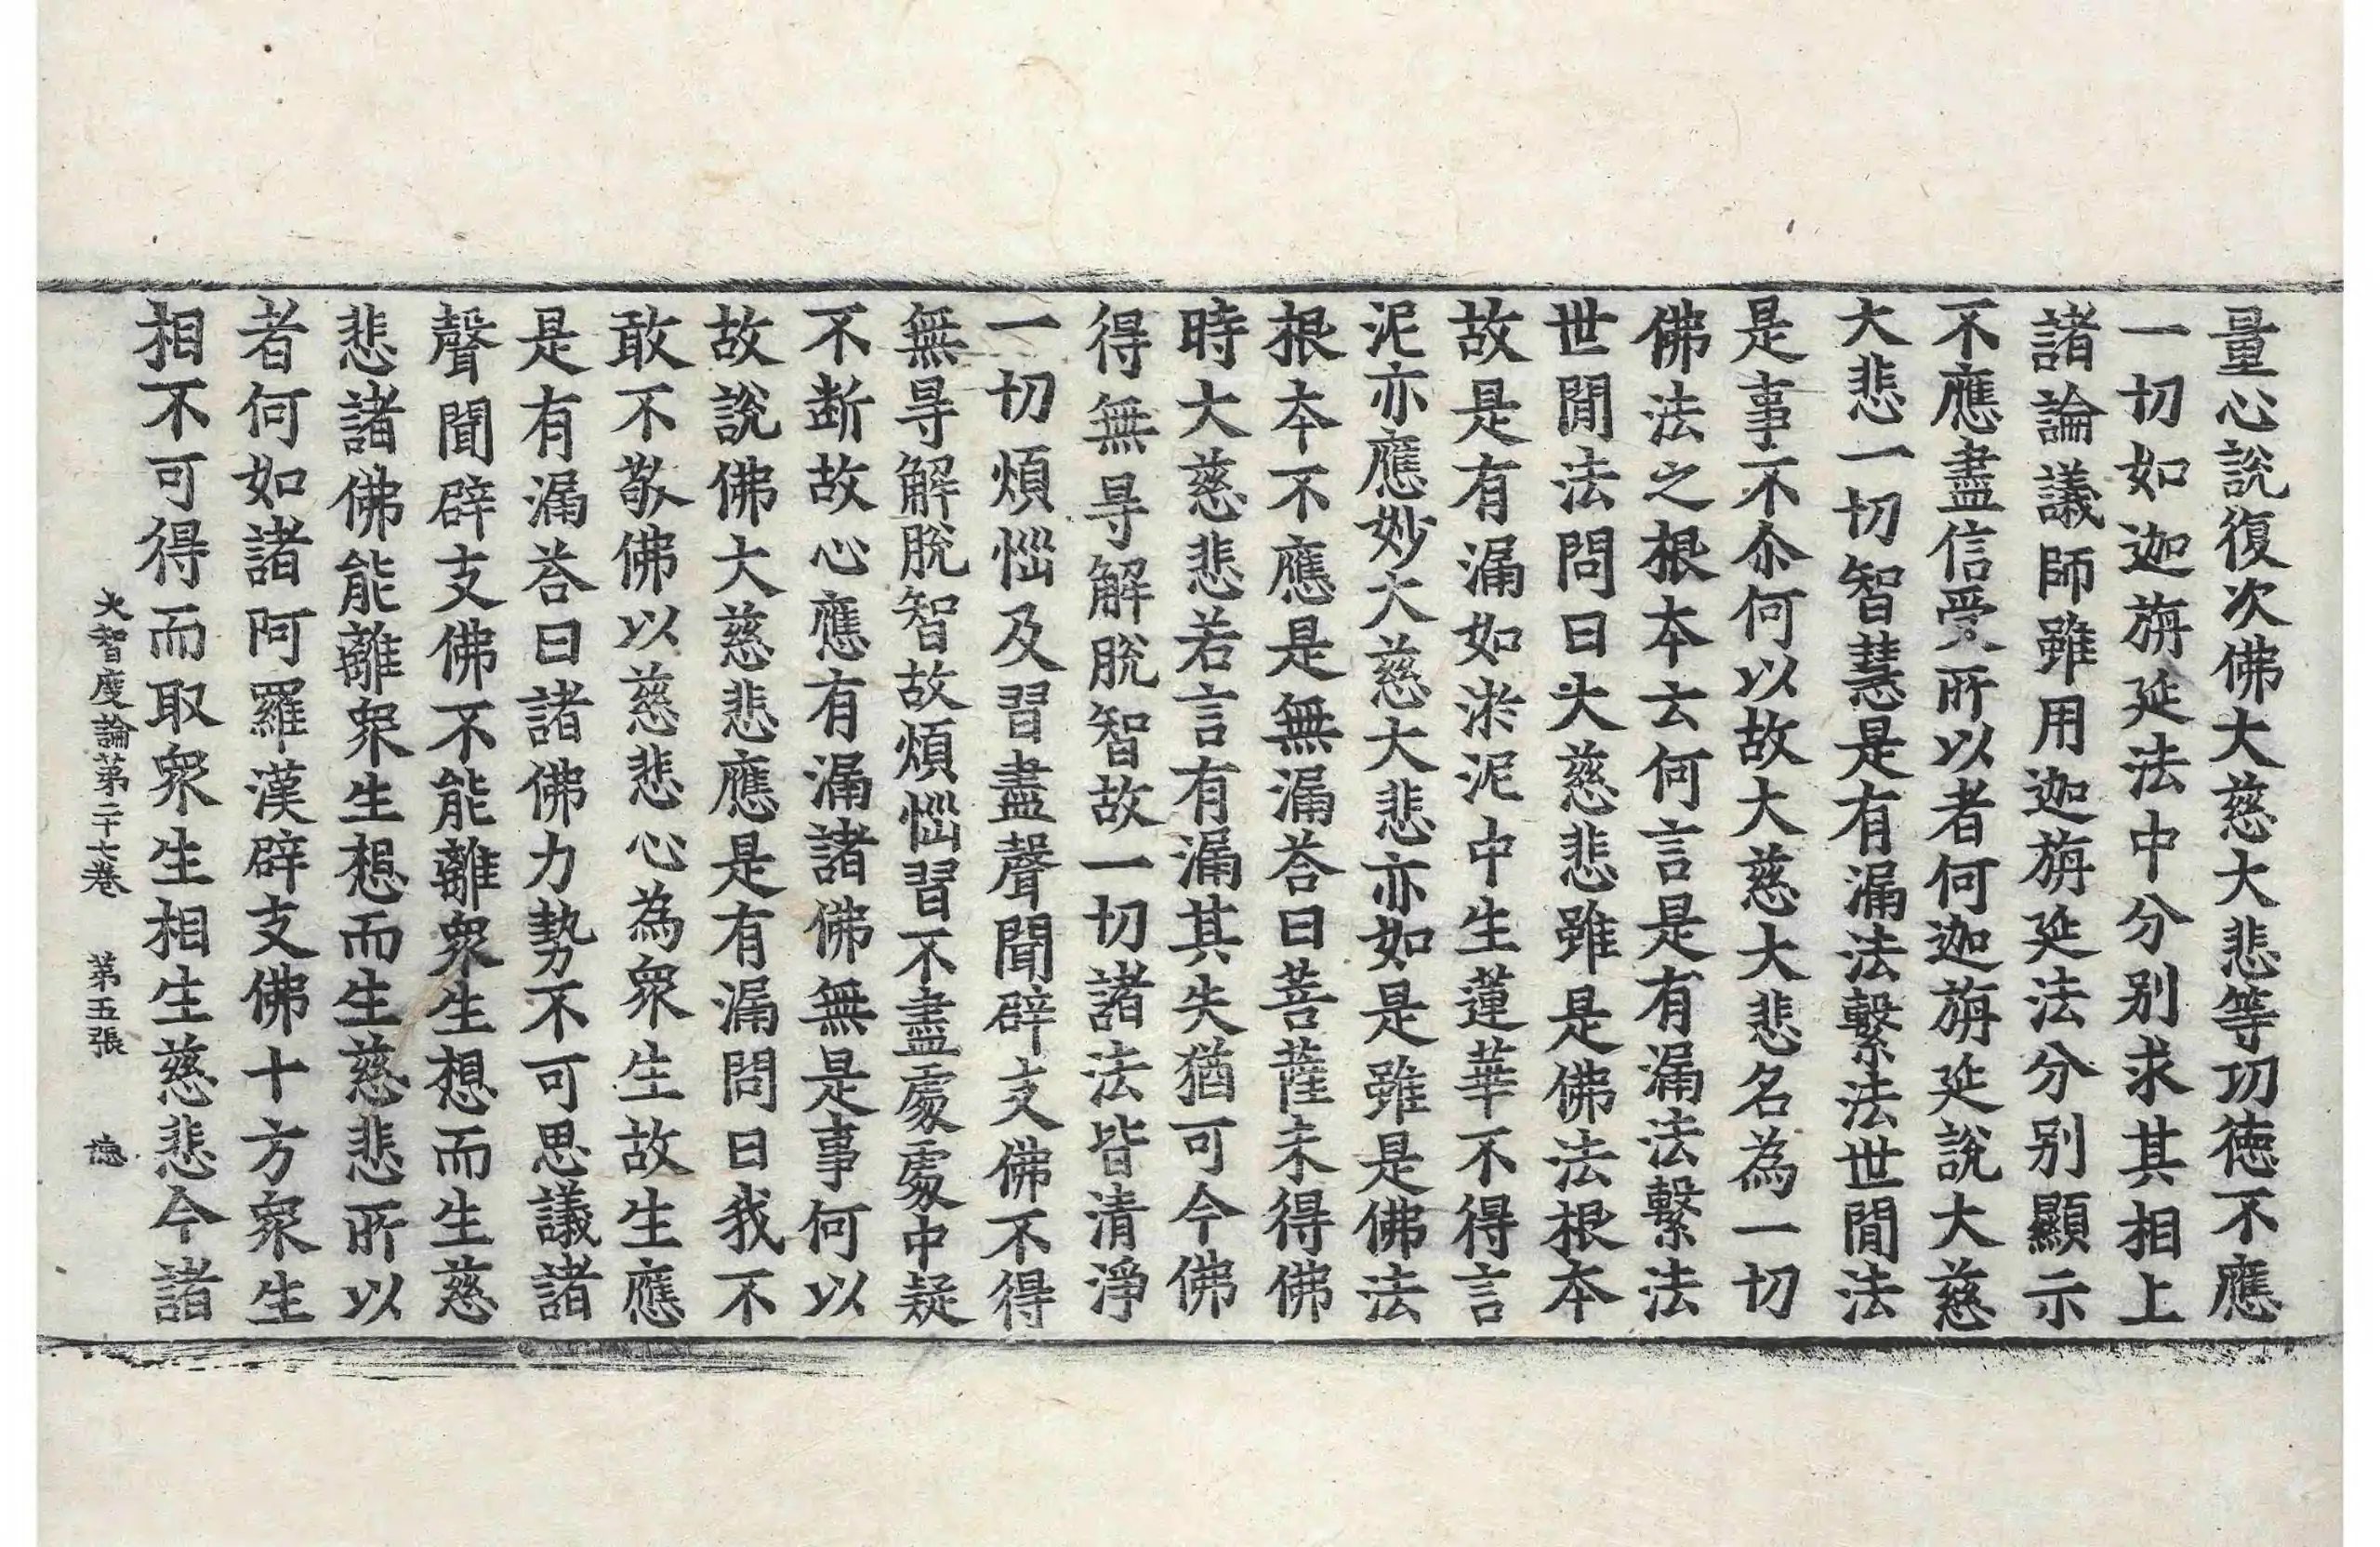 量心說復次佛大慈大悲等功德不應
一切如迦旃延法中分别求其相上
諸論議師雖用迦旃延法分别顯示
不應盡信受所以者何迦旃延說大慈
大悲一切智慧是有漏法繫法世閒法
是事不尒何以故大慈大悲名為一切
佛法之根本云何言是有漏法繫法
世閒法問曰大慈悲雖是佛法根本
故是有漏如淤泥中生蓮華不得言
泥亦應妙大慈大悲亦如是雖是佛法
根本不應是無漏荅曰菩薩未得佛
時大慈悲若言有漏其失猶可今佛
得無㝵解脫智故一切諸法皆清淨
一切煩惱及習盡聲聞辟支佛不得
無㝵解脫智故煩惱習不盡處處中疑
不斷故心應有漏諸佛無是事何以
故說佛大慈悲應是有漏問曰我不
敢不敬佛以慈悲心為衆生故生應
是有漏荅曰諸佛力勢不可思議諸
聲聞辟支佛不能離衆生想而生慈
悲諸佛能離衆生想而生慈悲所以
者何如諸阿羅漢辟支佛十方衆生
相不可得而取衆生相生慈悲今諸
大智度論第二十七卷 第五張 德